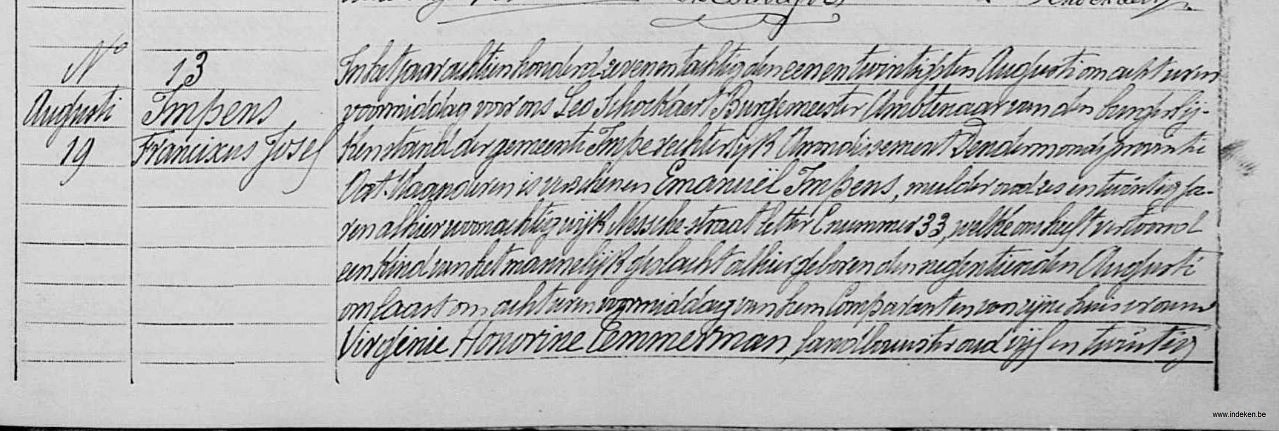 N° 13
Augusti Impens
19 Franciscus Josef
In het jaar achtien honderd zeven en tachtig den een en twintigsten Augusti om acht uren
voormiddag voor ons Leo Schockaert Burgemeester Ambtenaar van den burgerlij-
ken stand der gemeente Impe rechterlijk Arrondissement Dendermonde provintie
Oost Vlaanderen is verschenen Emanuël Impens, mulder oud zes en twintig ja-
ren alhier woonachtig wijk straat letter C nummer 33, welke ons heeft vertoond
een kind van het mannelijk geslacht alhier geboren den negentienden Augusti
om acht uren voormiddag van hem Comparant en van zijne huisvrouw
Virginie Honorine Temmerman, landbouwster oud vijf en twintig
www.indeken.be